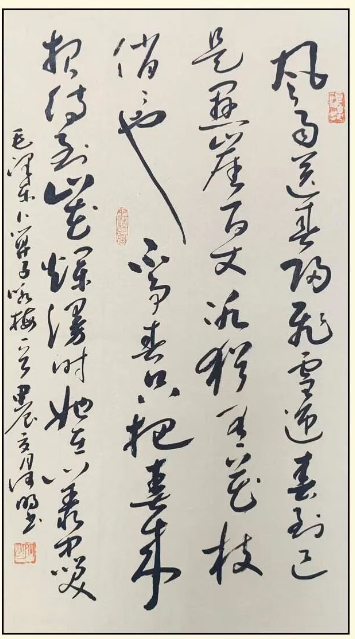 风雨送春归飞雪迎春到已
是悬崖百丈冰犹有花枝
俏〻也不争春只把春来
报待到山花烂漫时她在丛中笑
毛泽东卜算子咏梅 甲辰 月 明书